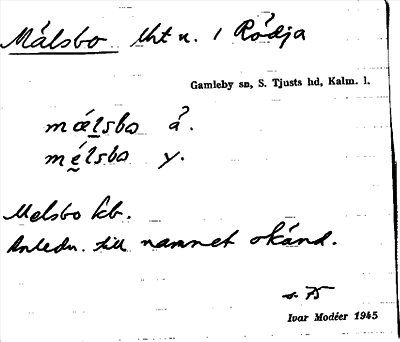 Målsbo lht u. / Rödja
Gamleby sn, S. Tjusts hd, Kalm. l.
mælsbo å.
mélsbo y.
Melsbo kb.
Anledn. till namnet okänd.
Ivar Modéer 1945